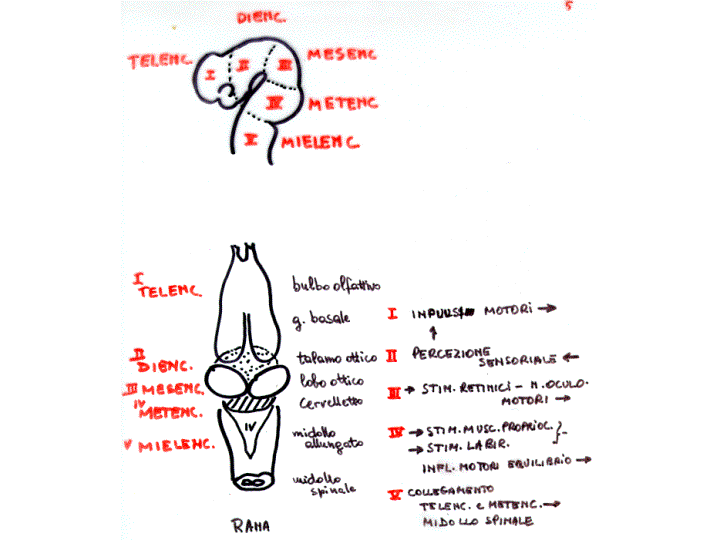 5
DIENC.
TELENC.
MESENC
I
II
III
IV
METENC
V
MIELENC.
I
TELENC.
bulbo olfattivo
g. basale
I IMPULSI MOTORI →
↑
II
DIENC.
talamo ottico
II PERCEZIONE
SENSORIALE ←
III MESENC.
lobo ottico
III → STIM. RETINICI - N. OCULO.
MOTORI →
IV
METENC.
cervelletto
IV
V MIELENC.
midollo
allungato
IV → STIM. MUSC. PROPRIOC.
→ STIM. LABIR.
INFL. MOTORI EQUILIBRIO →
midollo
spinale
V COLLEGAMENTO
TELENC. e METENC. →
MIDOLLO SPINALE
RANA